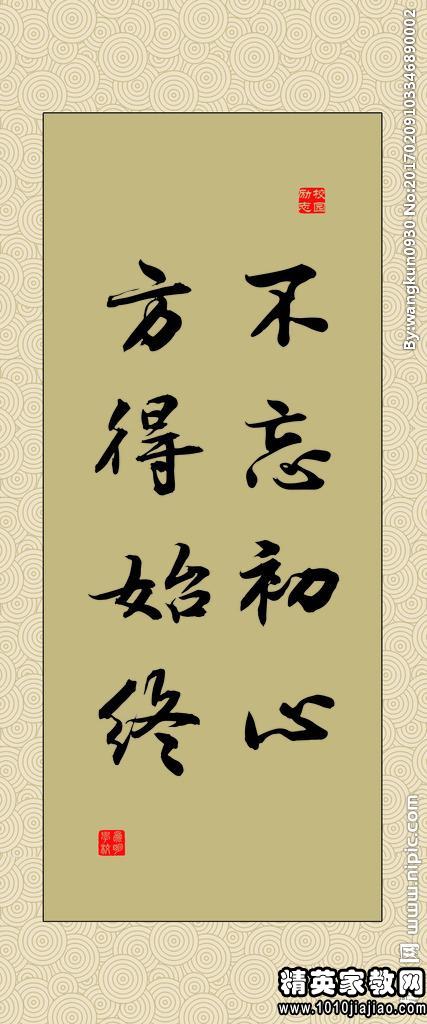 不忘初心
方得始终
校园
励志
By:wangkun0930 No:20170209103346890002
网 www.nipic.com
精英家教网
www.1010jiajiao.com